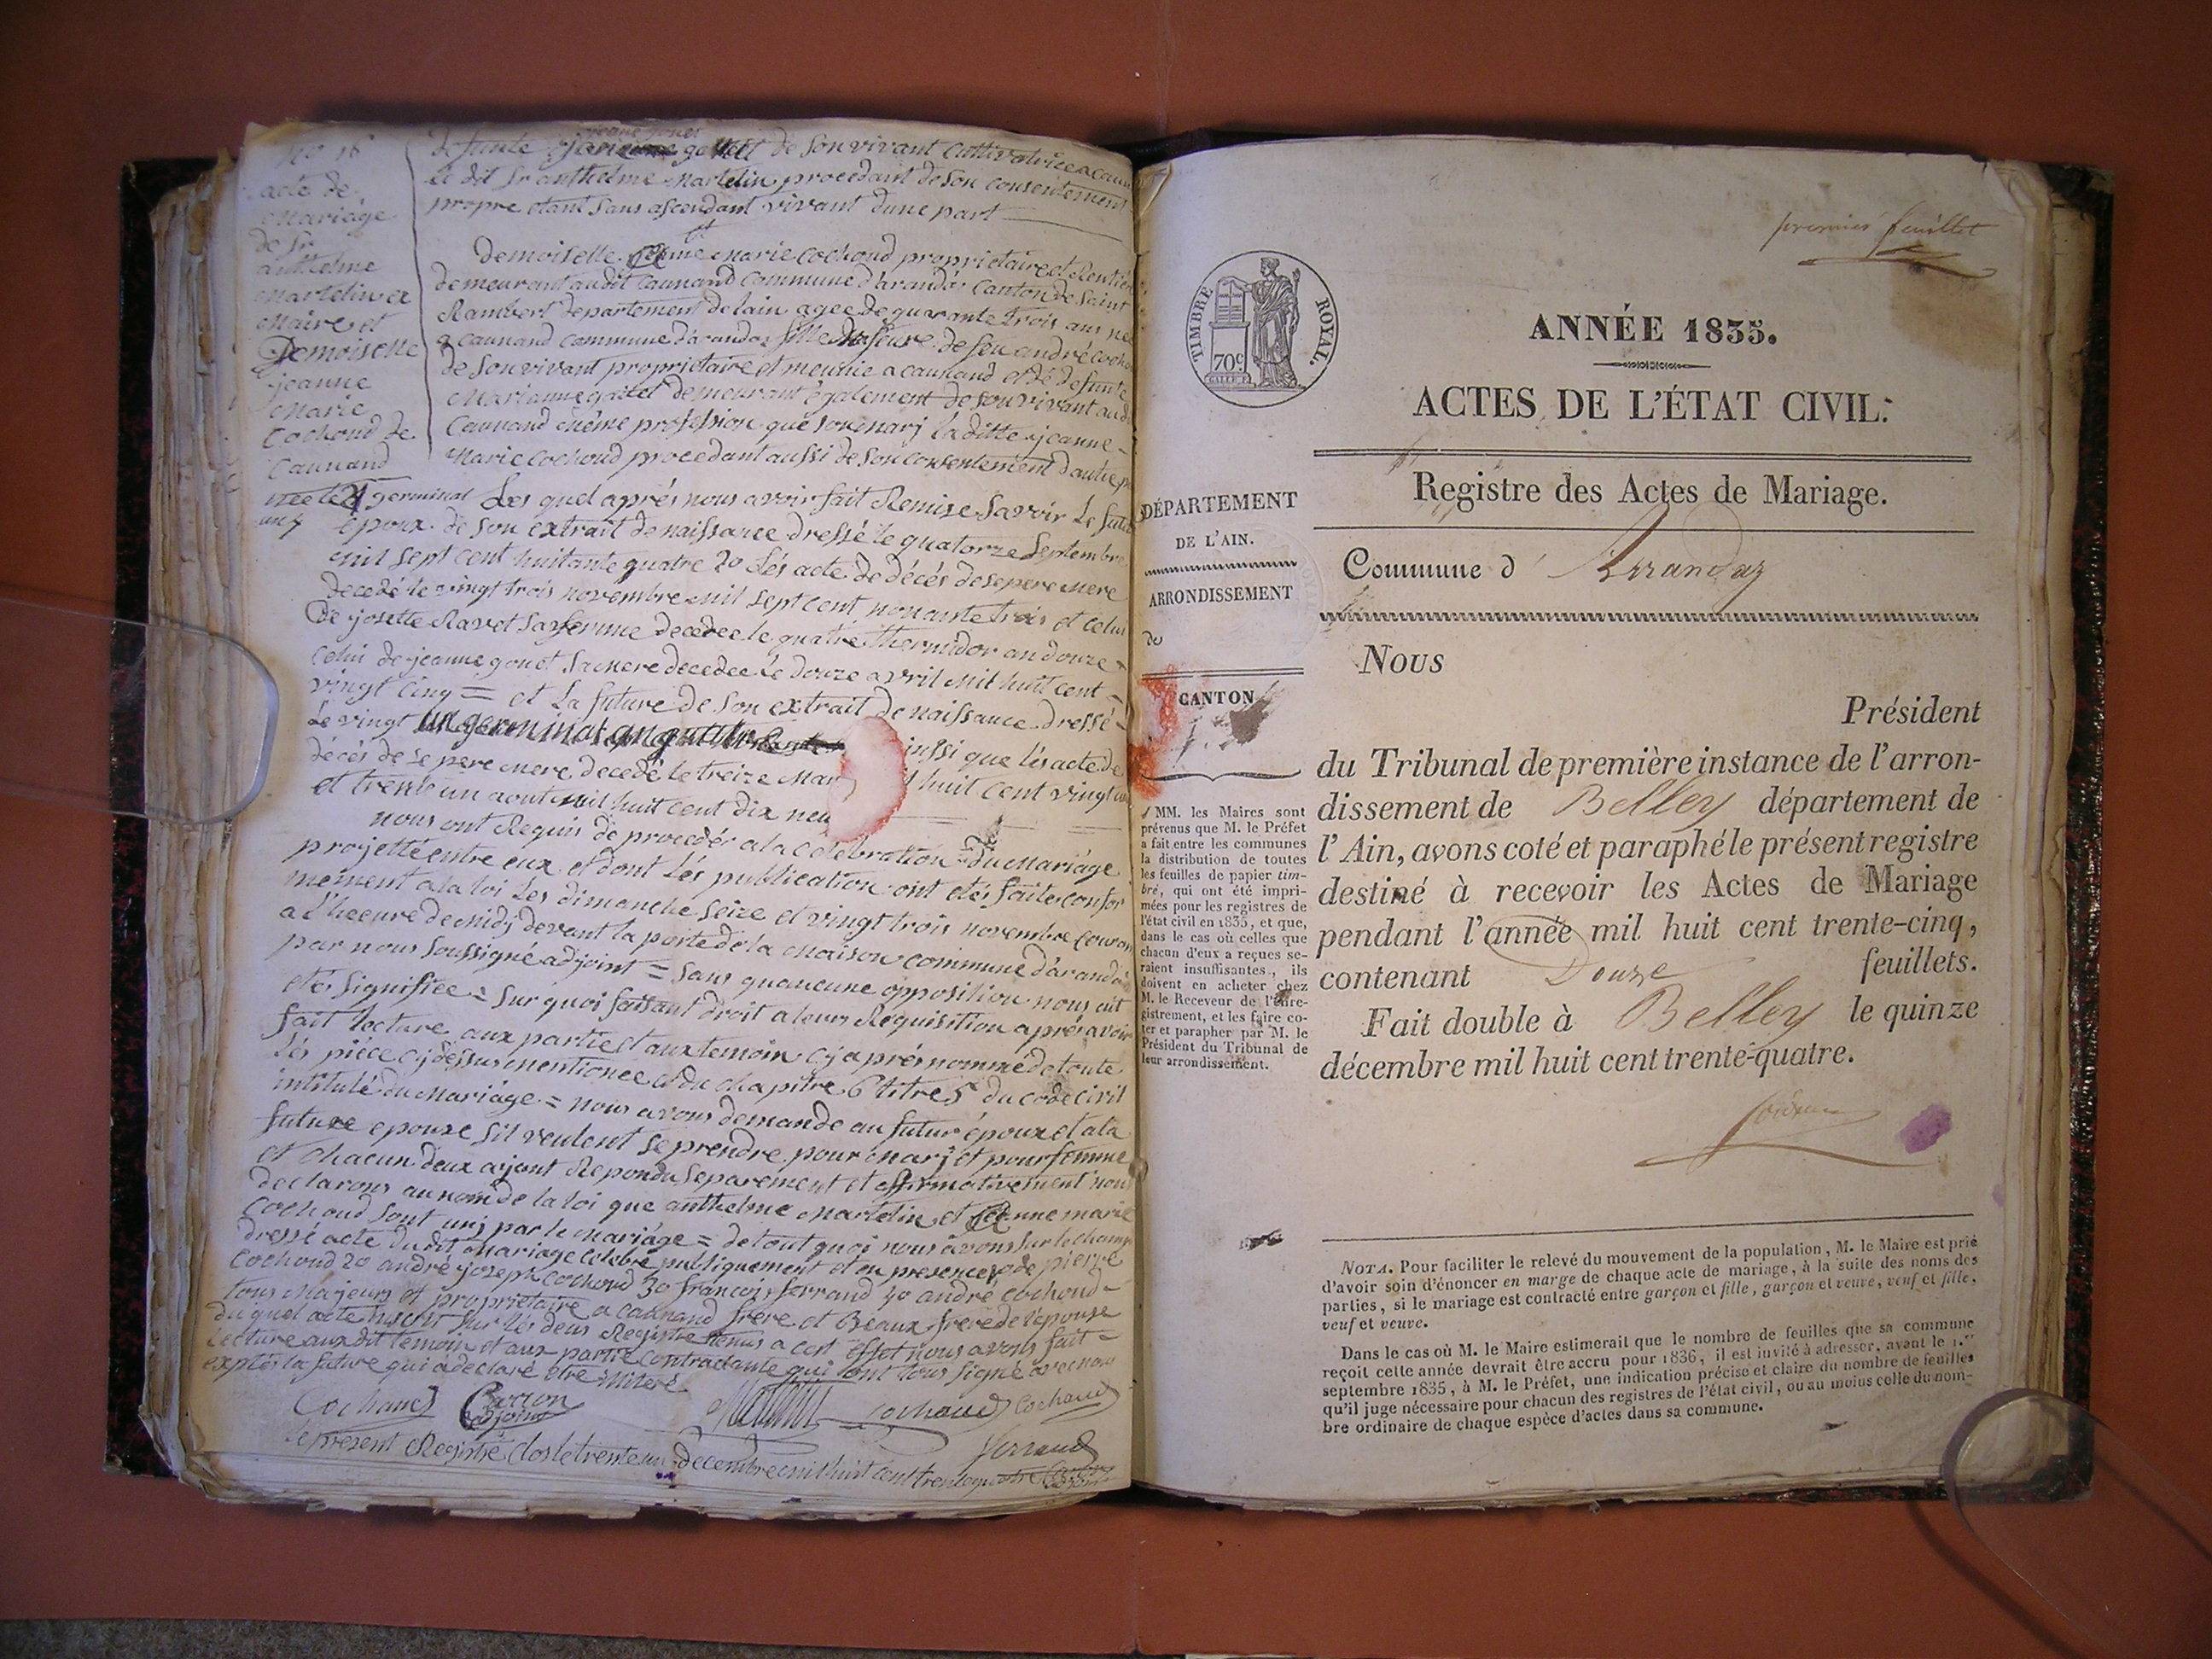 acte de
Mariage
de Sr
anthelme
Martelin ex
Maire et
Demoiselle
jeanne
Marie
Cochoud de
Caunand
née le 21 germinal
an 7
defunte jeanne de son vivant Cultivatrice a
le dit Sr anthelme Martelin procedant de son consentement
propre etant sans ascendant vivant dune part
et
Demoiselle jeanne Marie Cochoud proprietaire et Rentiere
demeurant audit Caunand Commune d'arandas Canton de Saint
Rambert departement de lain agee de quarante trois ans
a Caunand Commune d'arandas fille de feu andré
de son vivant proprietaire et meunie a caunand et de defunte
Marianne demeurant également de son vivant aud
Caunand même profession que son marj la ditte jeanne
Marie Cochoud procedant aussi de son consentement d'autre
Les quel après nous avoir fait Remise Savoir Le futur
époux de son extrait de naissance dressé le quatorze Septembre
mil sept cent huitante quatre 2o Les acte de décés de se pere mere
decedé le vingt trois novembre mil sept cent nonante trois et celui
De josette Ravet Sa femme decedee le quatre thermidor an douze
celui de jeanne gouet Sa mere decedee le douze avril mil huit cent
vingt cinq = et La future de son extrait De naissance dressé
Le vingt un germinal an que les acte de
décés de se pere mere decedé le treize huit cent vingt
et trente un aout mil huit cent dix
nous ont Requis de proceder a la Celebration du Mariage
projetté entre eux et dont Les publication ont etés faites confor
mément a la loi Les dimanche Seize et vingt trois novembre
a l'heeure de Midj devant la porte de la Maison commune d'arandas
par nous Soussigné adjoint = Sans quaucune opposition nous ait
étés Signifiee = Sur quoi faisant droit a leurs Requisition après avoir
fait lecture aux partie et aux temoin cj après nommé de toute
Lés piéce cj dessus mentionee et du chapitre 6 titre 5 du code civil
intitulé du Mariage = nous avons demande au futur époux et a la
future epouze Sil veulent se prendre pour Marj et pour femme
et chacun deux ajant Repondu Separement et affirmativement nous
declarons au nom de la loi que anthelme Martelin et jeanne marie
Cochoud Sont unj par le Mariage = de tout quoi nous avons Sur le champ
dressé acte du dit Mariage Celebré publiquement et en presence de pierre
Cochoud 2o andré joseph Cochoud 3o françois ferrand 4o andre Cochoud
tous Majeurs et proprietaire a caunand frere et Beaux frere de l'epouse
du quel acte inscrit sur les deus Registre tenus a cest effet nous avons fait
Lecture aux dit temoin et aux partie contractante qui ont tous Signé avec nous
exptés la future qui a declaré etre illiteré
Cochaud Carrion
adjoint
Cochaud Cochaud
ferrand
le present Registre Clos le trente un decembre mil huit cent trente quatre
premier feuillet
TIMBRE ROYAL.
70c
ANNÉE 1835.
ACTES DE L'ÉTAT CIVIL.
Registre des Actes de Mariage.
DÉPARTEMENT
DE L'AIN.
ARRONDISSEMENT
de
CANTON
MM. les Maires sont
prévenus que M. le Préfet
a fait entre les communes
la distribution de toutes
les feuilles de papier tim-
bré, qui ont été impri-
mées pour les registres de
l'état civil en 1835, et que,
dans le cas où celles que
chacun d'eux a reçues se-
raient insuffisantes, ils
doivent en acheter chez
M. le Receveur de l'Enre-
gistrement, et les faire co-
ter et parapher par M. le
Président du Tribunal de
leur arrondissement.
Commune d' Arandaz
Nous
Président
du Tribunal de première instance de l'arron-
dissement de Belley département de
l'Ain, avons coté et paraphé le présent registre
destiné à recevoir les Actes de Mariage
pendant l'année mil huit cent trente-cinq,
contenant Douze feuillets.
Fait double à Belley le quinze
décembre mil huit cent trente-quatre.
NOTA. Pour faciliter le relevé du mouvement de la population, M. le Maire est prié
d'avoir soin d'énoncer en marge de chaque acte de mariage, à la suite des noms des
parties, si le mariage est contracté entre garçon et fille, garçon et veuve, veuf et fille,
veuf et veuve.
Dans le cas où M. le Maire estimerait que le nombre de feuilles que sa commune
reçoit cette année devrait être accru pour 1836, il est invité à adresser, avant le 1.er
septembre 1835, à M. le Préfet, une indication précise et claire du nombre de feuilles
qu'il juge nécessaire pour chacun des registres de l'état civil, ou au moins celle du nom-
bre ordinaire de chaque espèce d'actes dans sa commune.